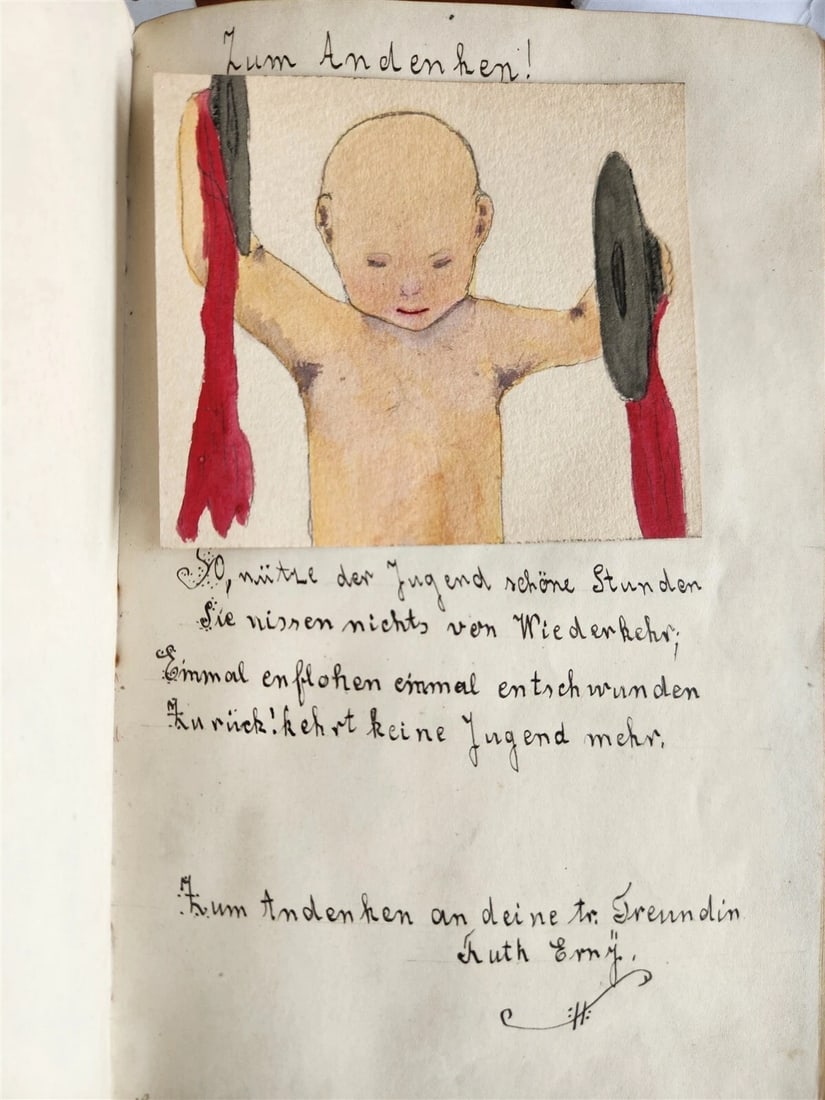 Zum Andenken!
So, nütze der Jugend schöne Stunden
Sie wissen nichts von Wiederkehr;
Einmal enflohen einmal entschwunden
Zurück! kehrt keine Jugend mehr.
Zum Andenken an deine tr. Freundin
Ruth Ernÿ.